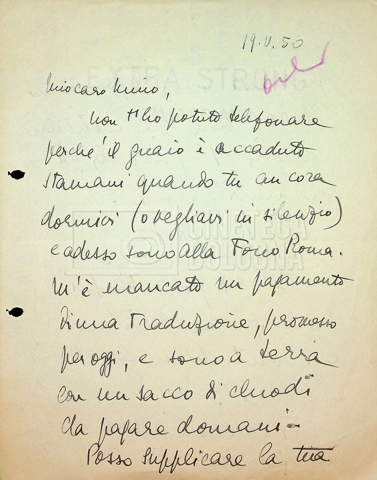 19.V.50
Mio caro Nino,
non t'ho potuto telefonare
perché il guaio è accaduto
stamani quando tu ancora
dormivi (o vegliavi in silenzio)
e adesso sono alla Fono Roma.
M'è mancato un pagamento
di una Traduzione, promesso
per oggi, e sono a terra
con un sacco di chiodi
da pagare domani -
Posso supplicare la tua
EXTRA STRONG
CINETECA
BOLOGNA